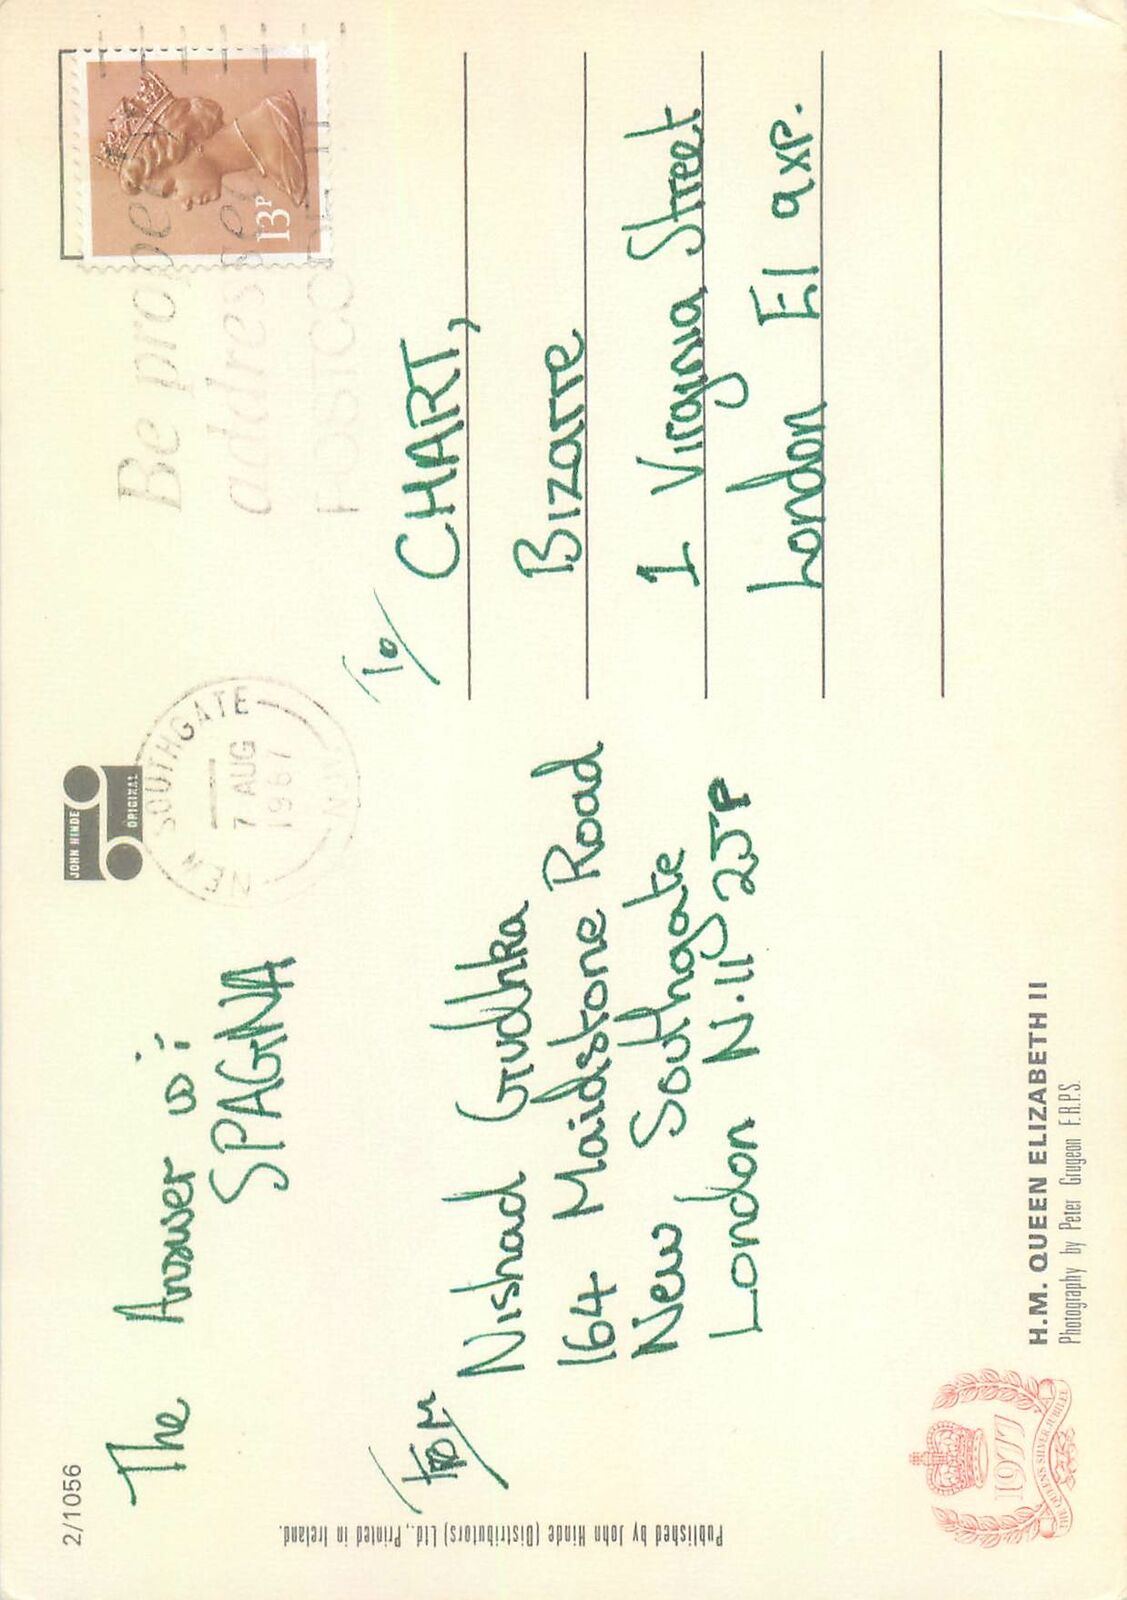 2/1056
The Answer is:
SPAGNA
From
Nishad Gudhka
164 Maidstone Road
New Southgate
London N.11 2JP
JOHN HINDE
ORIGINAL
NEW SOUTHGATE
7 AUG
1987
Be prope
addres
POSTCO
13P
To
CHART,
Bizarre
1 Virginia Street
London E1 9XP.
Published by John Hinde (Distributors) Ltd., Printed in Ireland.
1977
THE QUEENS SILVER JUBILEE
H.M. QUEEN ELIZABETH II
Photography by Peter Grugeon F.R.P.S.